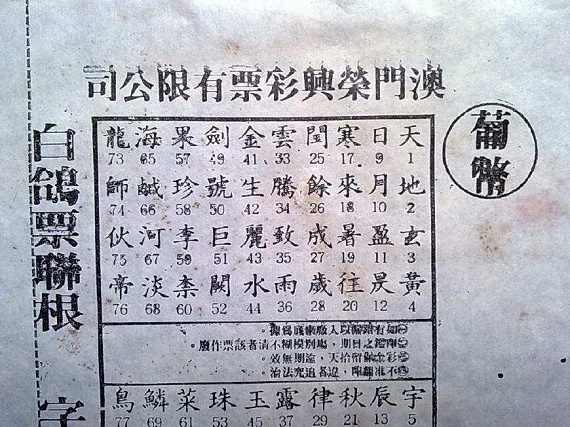 澳門榮興彩票有限公司
葡幣
天 日 寒 閏 雲 金 劍 果 海 龍
1 9 17 25 33 41 49 57 65 73
地 月 來 餘 騰 生 號 珍 鹹 師
2 10 18 26 34 42 50 58 66 74
玄 盈 暑 成 致 麗 巨 李 河 伙
3 11 19 27 35 43 51 59 67 75
黃 昃 往 歲 雨 水 闕 柰 淡 帝
4 12 20 28 36 44 52 60 68 76
如有錯漏以入廠票底爲準。
之日期，塲別模糊不清者該票作廢。
彩金保留拾天，逾期無效。
不准翻印，違者追究法治。
宇 辰 秋 律 露 玉 珠 菜 鱗 鳥
5 13 21 29 37 45 53 61 69 77
白鴿票聯根 字